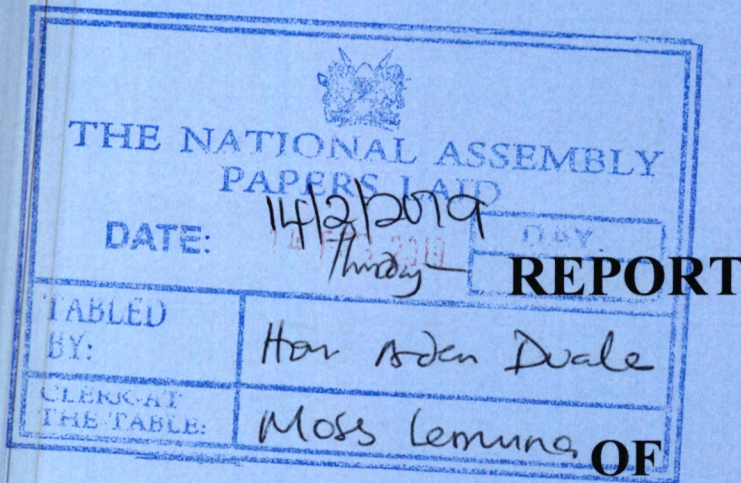 THE NATIONAL ASSEMBLY
PAPERS LAID
DATE: 14/2/2019 DAY.
Thursday
REPORT
TABLED BY: Hon Aden Duale
CLERK-AT THE-TABLE: Moss Lemuna
OF